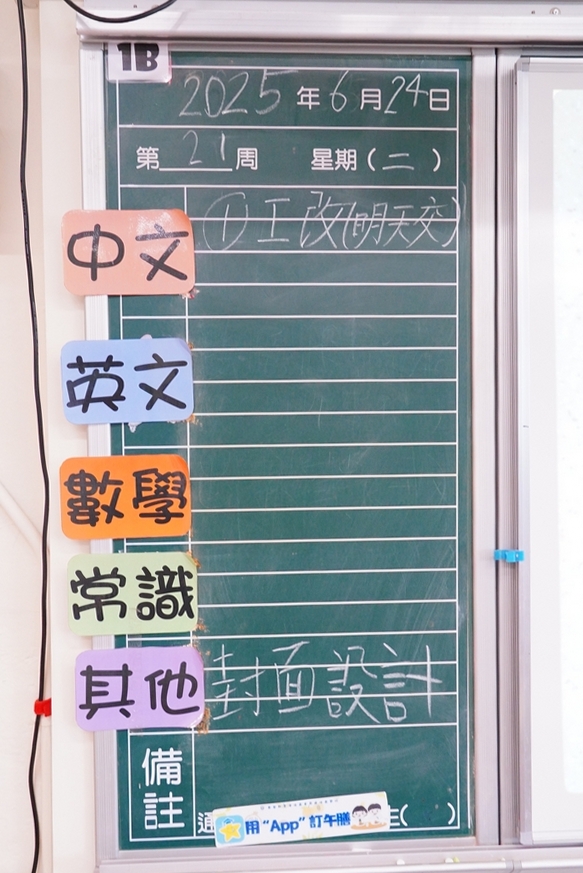 1B
2025年6月24日
第21周 星期（二）
中文 ①工改(明天交)
英文
數學
常識
其他 封面設計
備註
通
用“App”訂午膳
生( )